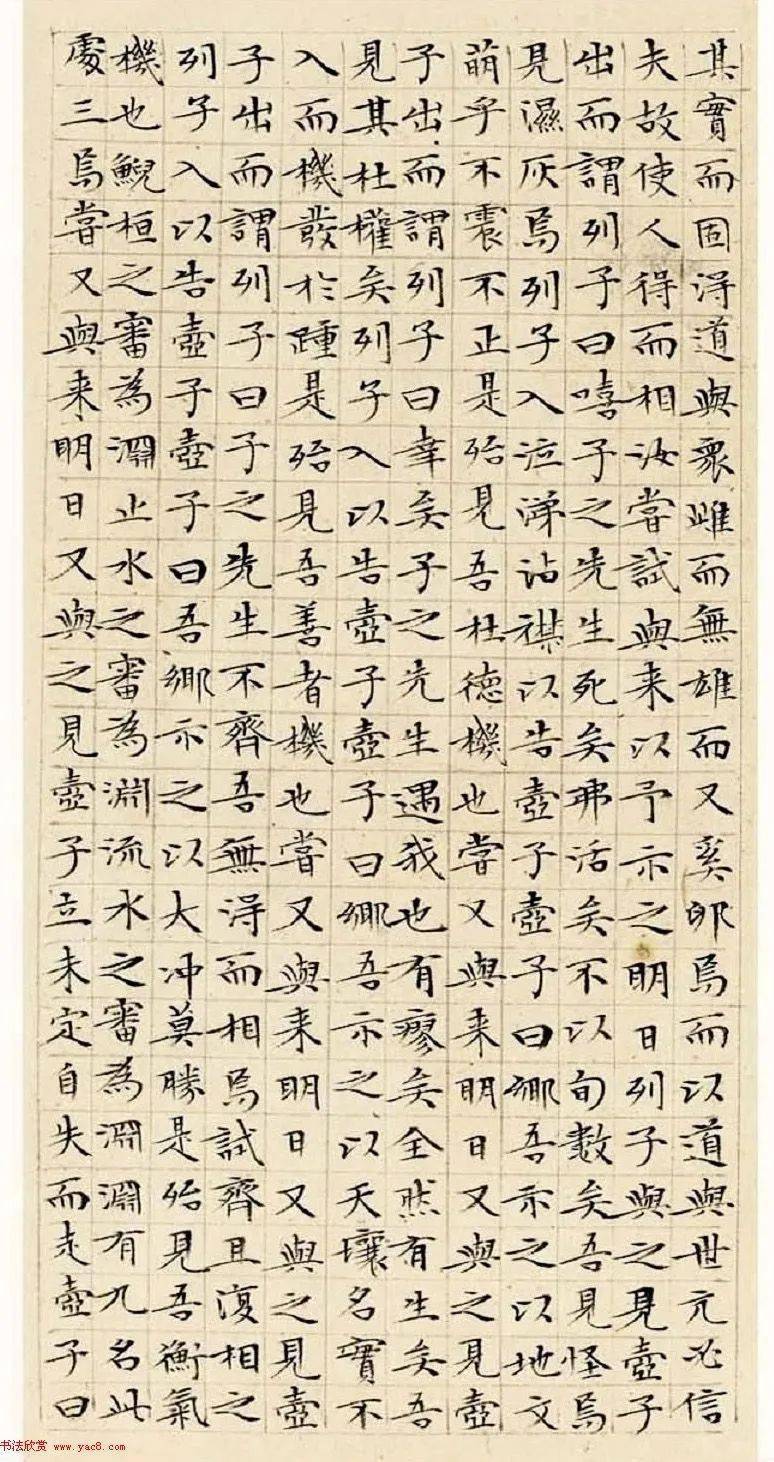 其實而固得道與眾雌而無雄而又奚卵焉而以道與世亢必信
夫故使人得而相汝嘗試與来以予示之明日列子與之見壺子
出而謂列子曰嘻子之先生死矣弗活矣不以旬數矣吾見怪焉
見濕灰焉列子入泣涕沾襟以告壺子壺子曰鄉吾示之以地文
萌乎不震不正是殆見吾杜德機也嘗又與来明日又與之見壺
子出而謂列子曰幸矣子之先生遇我也有瘳矣全然有生矣吾
見其杜權矣列子入以告壺子壺子曰鄉吾示之以天壤名實不
入而機發於踵是殆見吾善者機也嘗又與来明日又與之見壺
子出而謂列子曰子之先生不齊吾無得而相焉試齊且復相之
列子入以告壺子壺子曰吾鄉示之以大冲莫勝是殆見吾衡氣
機也鯢桓之審為淵止水之審為淵流水之審為淵淵有九名此
處三焉嘗又與来明日又與之見壺子立未定自失而走壺子曰
书法欣赏 www.yac8.com